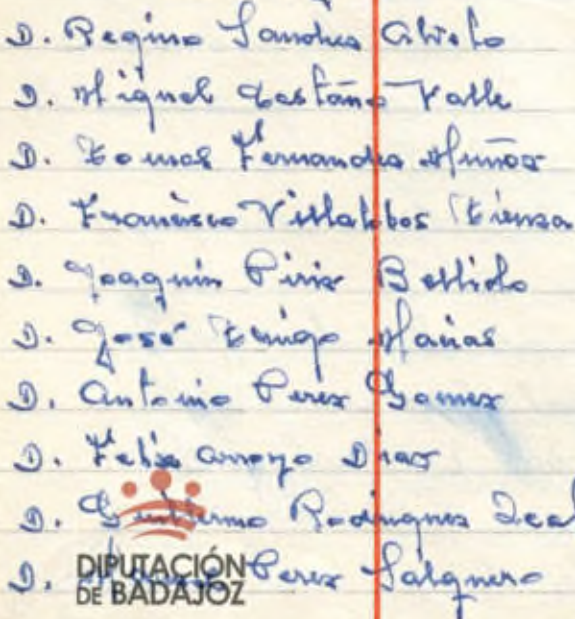 D. Regino Sanches
D. Miguel Castaño Valle
D. Tomas Fernandes Muños
D. Francisco Villalobos
D. Joaquin Piris Bellido
D. José Mañas
D. Antonio Perez Gomez
D. Felix Arroyo Dias
D. Guillermo Rodriguez Leal
D. Perez Salguero
DIPUTACIÓN
DE BADAJOZ